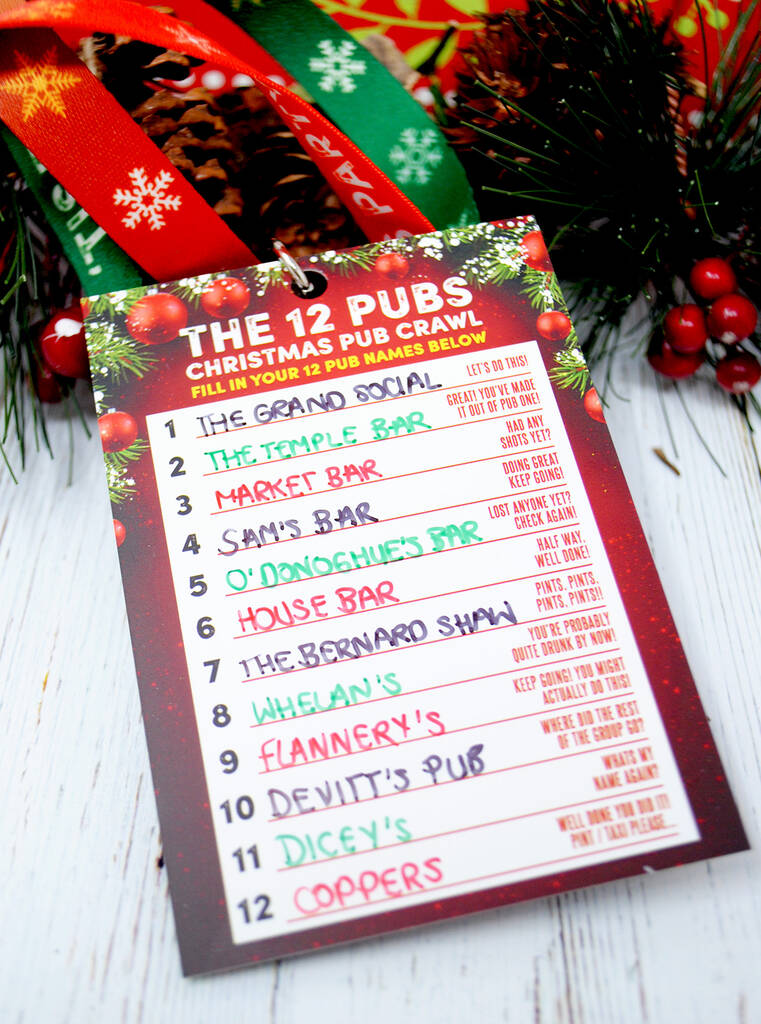 'TIS
PARTY
THE 12 PUBS
CHRISTMAS PUB CRAWL
FILL IN YOUR 12 PUB NAMES BELOW
1 THE GRAND SOCIAL LET'S DO THIS!
2 THE TEMPLE BAR GREAT! YOU'VE MADE
IT OUT OF PUB ONE!
3 MARKET BAR HAD ANY
SHOTS YET?
4 SAM'S BAR DOING GREAT
KEEP GOING!
5 O'DONOGHUE'S BAR LOST ANYONE YET?
CHECK AGAIN!
6 HOUSE BAR HALF WAY,
WELL DONE!
7 THE BERNARD SHAW PINTS, PINTS,
PINTS, PINTS!!
8 WHELAN'S YOU'RE PROBABLY
QUITE DRUNK BY NOW!
9 FLANNERY'S KEEP GOING! YOU MIGHT
ACTUALLY DO THIS!
10 DEVITT'S PUB WHERE DID THE REST
OF THE GROUP GO?
11 DICEY'S WHATS MY
NAME AGAIN?
12 COPPERS WELL DONE YOU DID IT!
PINT / TAXI PLEASE...